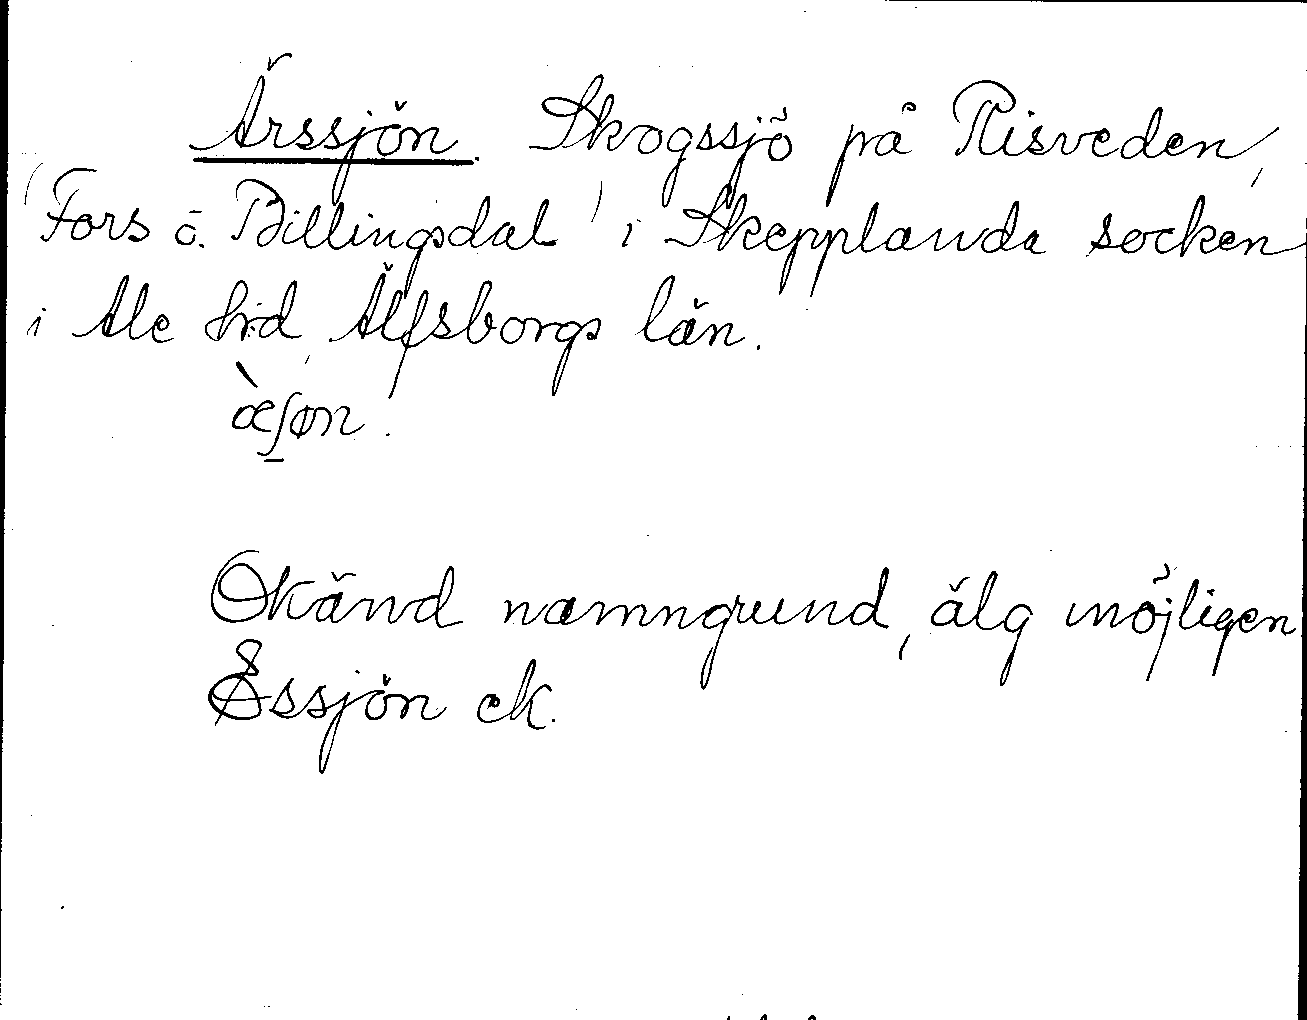 Ärssjön. Skogssjö på Risveden,
(Fors ö. Billingsdal) i Skepplanda socken
i Ale hrd, Älfsborgs län.
Okänd namngrund, älg möjligen
Essjön ek.